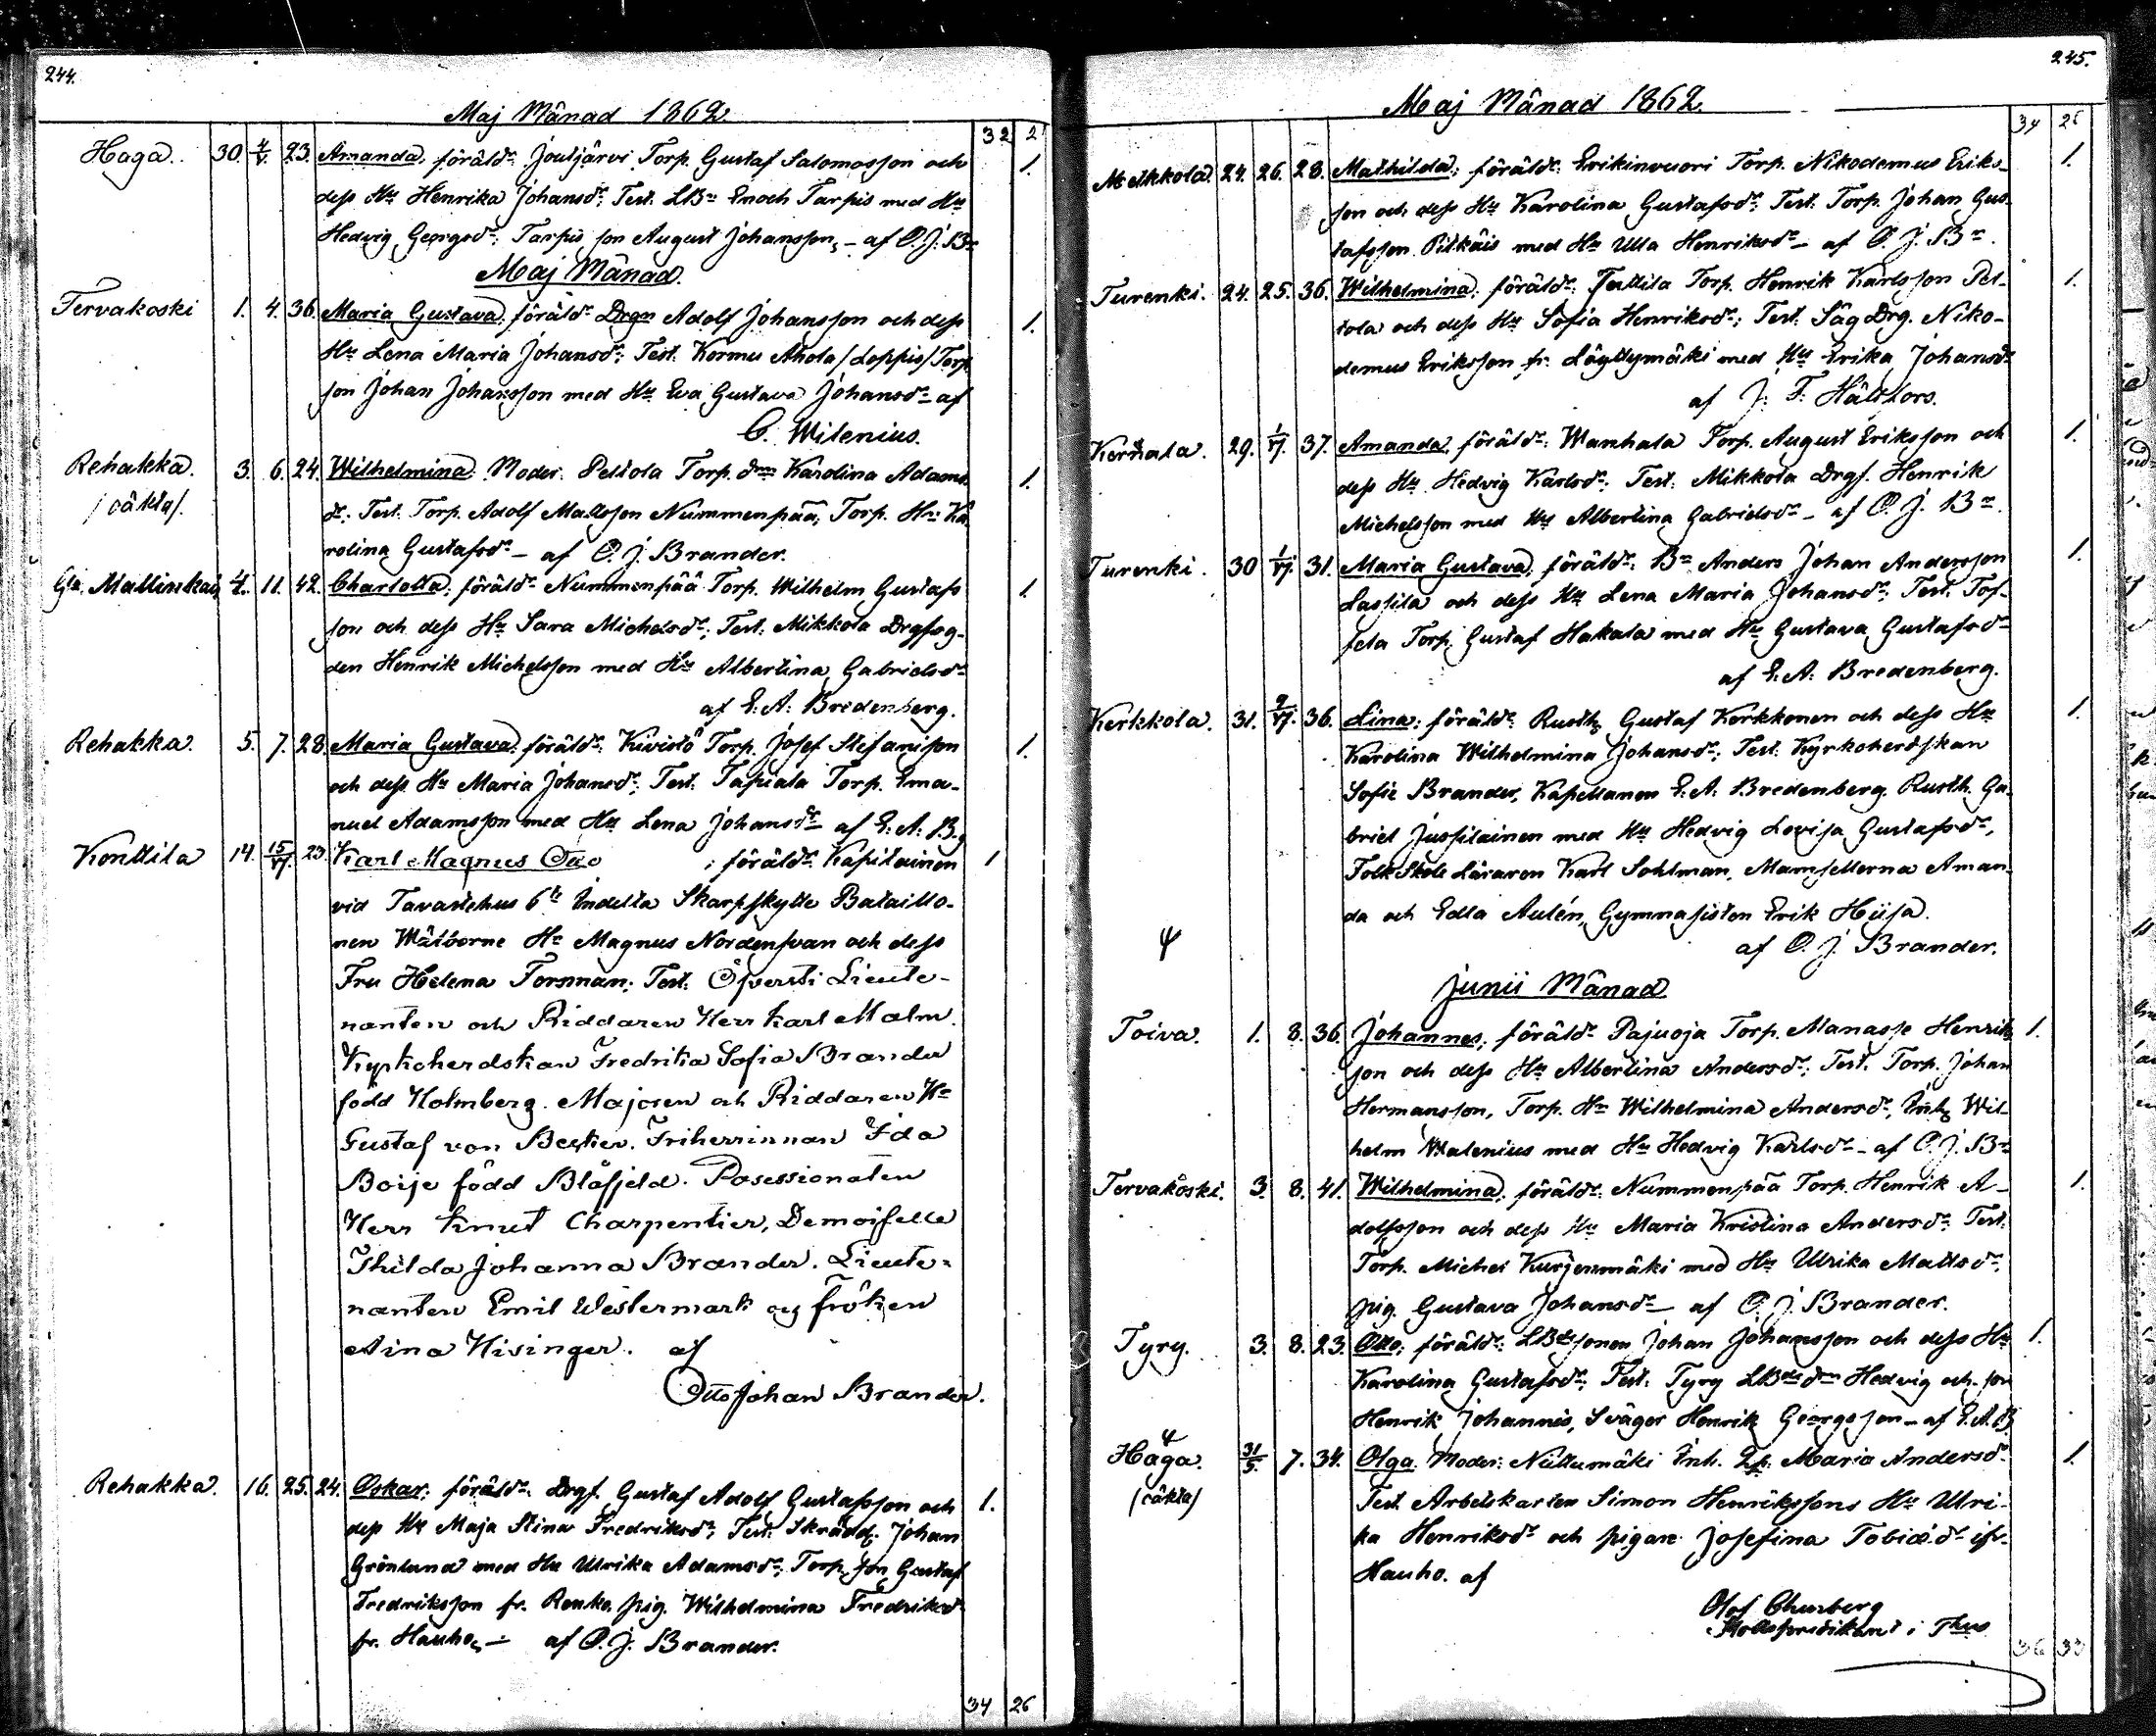 244.
Maj Månad 1862
32 2
Haga. 30. 4/V. 23. Amanda, föräldr: Joutjärvi Torp. Gustaf Salomosson och 1.
dess Hu Henrika Johansdr; Test. LBn Enoch Tarpis med Hu
Hedvig Georgsdr; Tarpis son August Johansson, - af O. J. Br
Maj Månad.
Tervakoski 1. 4. 36. Maria Gustava, föräldr Drgn Adolf Johansson och dess 1.
Hu Lena Maria Johansdr; Test. Kormu Ahola /Loppis/ Torp.
son Johan Johansson med Hu Eva Gustava Johansdr - af
C. Wilenius.
Rehakka. 3. 6. 24. Wilhelmina. Moder: Peltola Torp. drn Karolina Adams- 1.
/oäkta/. dr; Test. Torp. Adolf Mattsson Nummenpää, Torp. Hu Ka
rolina Gustafsdr - af O. J. Brander.
Mallinkais 4. 11. 42. Charlotta, föräldr Nummenpää Torp. Wilhelm Gustafs 1.
son och dess Hu Sara Michelsdr; Test. Mikkola Drgfog-
den Henrik Michelsson med Hu Albertina Gabrielsdr
af E. A. Bredenberg.
Rehakka. 5. 7. 28. Maria Gustava, föräldr: Kivistö Torp. Josef Stefansson 1.
och dess Hu Maria Johansdr; Test. Tapiala Torp. Ema-
nuel Adamsson med Hu Lena Johansdr - af E. A. B.g
Konttila 14. 15/VI. 23. Karl Magnus Otto ; föräldr Kapitainen 1
vid Tavastehus 6te Indelta Skarpskytte Bataillo-
nen Wälborne Hr Magnus Nordenswan och dess
Fru Helena Forsman; Test. Öfversti Lieute-
nanten och Riddaren Herr Karl Malm.
Kyrkoherdskan Fredrika Sofia Brander
född Holmberg. Majoren och Riddaren Hr
Gustaf von Becker. Friherrinnan Ida
Boije född Blåfjeld. Posessionaten
Herr Knut Charpentier, Demoiselle
Thilda Johanna Brander. Lieute-
nanten Emil Westermark og Fröken
Aina Hisinger. af
Otto Johan Brander.
Rehakka. 16. 25. 24. Oskar; föräldr: Drgf. Gustaf Adolf Gustafsson och 1.
dess Hu Maja Stina Fredriksdr; Test. Skrädd. Johan
Grönlund med Hu Ulrika Adamsdr; Torp. son Gustaf
Fredriksson fr. Renko, pig. Wilhelmina Fredriksdr
fr. Hauho, - af O. J. Brander.
34 26
245.
Maj Månad 1862.
34 26
Melkkola. 24. 26. 28. Mathilda; föräldr: Erikinvuori Torp. Nikodemus Eriks- 1.
son och dess Hu Karolina Gustafsdr; Test. Torp. Johan Gus-
tafsson Pitkäis med Hu Ulla Henriksdr - af O. J. Br.
Turenki. 24. 25. 36. Wilhelmina; föräldr: Torp. Henrik Karlsson Pel- 1.
tola och dess Hu Sofia Henriksdr; Test. Såg Drg. Niko-
demus Eriksson fr. Löyttymäki med Hu Erika Johansdr
af J. F. Hällfors.
Kernala. 29. 1/VI. 37. Amanda, föräldr: Wanhala Torp. August Eriksson och 1.
dess Hu Hedvig Karlsdr; Test. Mikkola Drgf. Henrik
Michelsson med Hu Albertina Gabrielsdr - af O. J. Br.
Turenki. 30 1/VI. 31. Maria Gustava; föräldr: Bn Anders Johan Andersson 1.
Lassila och dess Hu Lena Maria Johansdr; Test. Tof-
fela Torp. Gustaf Hakala med Hu Gustava Gustafsdr
af E. A. Bredenberg.
Kerkkola. 31. 9/VI. 36. Lina; föräldr: Rusth. Gustaf Kerkkonen och dess Hu 1.
Karolina Wilhelmina Johansdr; Test. Kyrkoherdskan
Sofie Brander, Kapellanen E. A. Bredenberg. Rusth. Ga-
briel Jussilainen med Hu Hedvig Lovisa Gustafsdr,
Folk Skole Läraren Karl Sohlman, Mamsellerna Aman-
da och Edla Aulén, Gymnasisten Erik Hiisa.
af O. J. Brander.
Junii Månad
Toiva. 1. 8. 36. Johannes; föräldr Pajuoja Torp. Manasse Henriks 1.
son och dess Hu Albertina Andersdr; Test. Torp. Johan
Hermansson, Torp. Hu Wilhelmina Andersdr, Inh. Wil-
helm Malenius med Hu Hedvig Karlsdr - af O. J. Br
Tervakoski. 3. 8. 41. Wilhelmina; föräldr: Nummenpää Torp. Henrik A- 1.
dolfsson och dess Hu Maria Kristina Andersdr. Test.
Torp. Michel Kurjenmäki med Hu Ulrika Mattsdr,
pig. Gustava Johansdr - af O. J. Brander.
Tyry. 3. 8. 23. Otto; föräldr: LBdesonen Johan Johansson och dess Hu 1.
Karolina Gustafsdr; Test. Tyry LBde drn Hedvig och son
Henrik Johannis, Svåger Henrik Georgsson - af E. A. B
Haga. 31/5. 7. 34. Olga. Moder: Nuttumäki Inh. Maria Andersdr. 1.
/oäkta/ Test. Arbetskarlen Simon Henrikssons Hu Ulri-
ka Henriksdr och pigan Josefina Tobiædr ifr.
Hauho. af
Olof Churberg
Slottspredikant i Thus
36 33